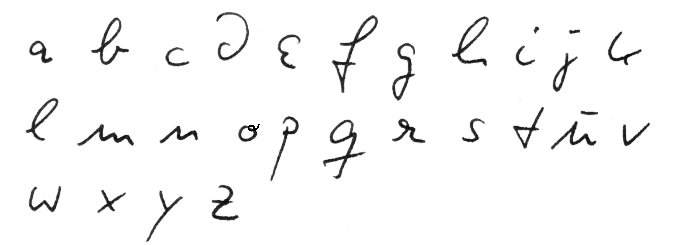 a b c d e f g h i j k
l m n o p q r s t ū v
w x y z